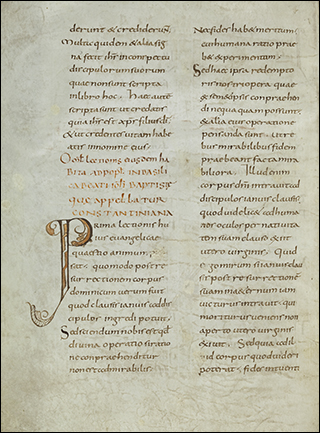 derunt & crediderunt.
Multa quidem & alia sig
na fecit ihs in conspectu
discipulorum suorum
quae non sunt scripta
in libro hoc. Haec autem
scripta sunt ut credatis
quia ihs est xps filius di.
& ut credentes vitam habe
atis in nomine eius.
lectionis eiusdem ha
bita ad popl in basili
ca beati ioh baptistae
que appellatur
constantiniana
Prima lectionis hu
ius evangelicae
quaestio animum
sat. quomodo post re
surrectionem corpus
dominicum verum fuit
quod clausis ianuis ad dis
cipulos ingredi potuit.
Sed sciendum nobis est qd
divina operatio si ratio
ne conpraehenditur
non est admirabilis.
Nec fides hab& meritum
cui humana ratio prae
b& experimentum.
Sed haec ipsa redempto
ris nostri opera quae
& semedipsis conpraehen
di nequaquam possunt
& alia eius operatione
pensanda sunt. ut re
bus mirabilibus fidem
praebeant facta mira
biliora. Illud enim
corpus dni intravit ad
discipulos ianuis clausis
quod videlic& ad huma
nos oculos per nativita
tem suam clauso exiit
utero virginis. Quid
ergo mirum si ianuis clau
sis post resurrectionem
suam in aeternum iam
victurus intravit. qui
moriturus veniens non
aperto utero virginis
exivit. Sed quia ad il
lud corpus quod videri
poterat. fides intuenti